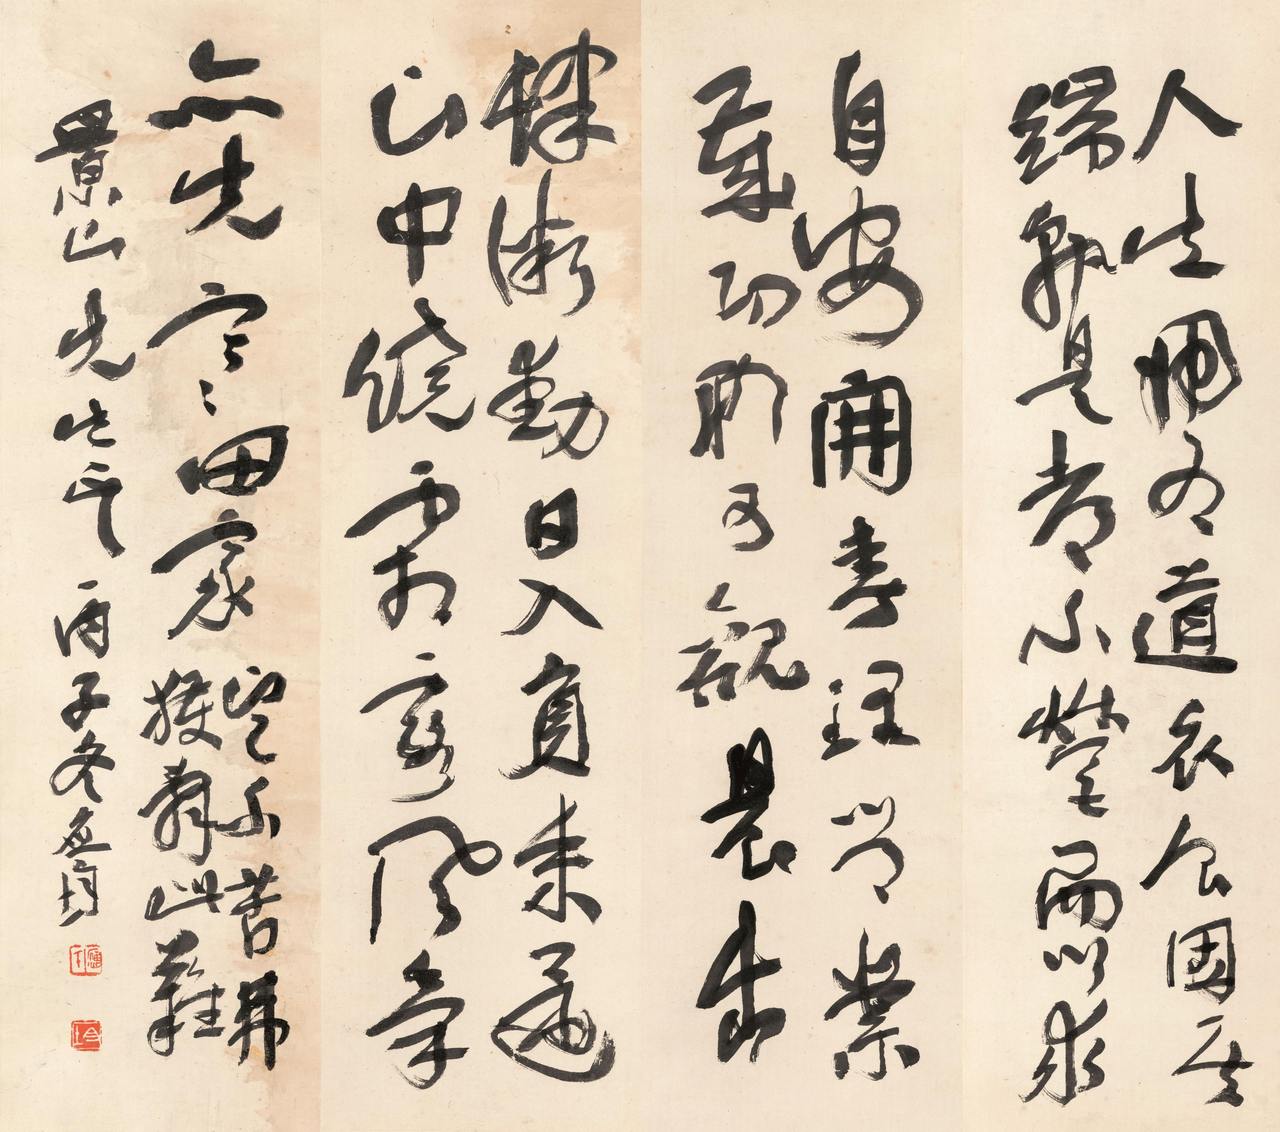 人生歸有道衣食固其
端孰是都不營而以求
自安開春理常業
歲功聊可觀晨出
肆微勤日入負耒還
山中饒霜露風氣
亦先寒田家
豈不苦弗
獲辭此難
景山先生正丙子冬應均